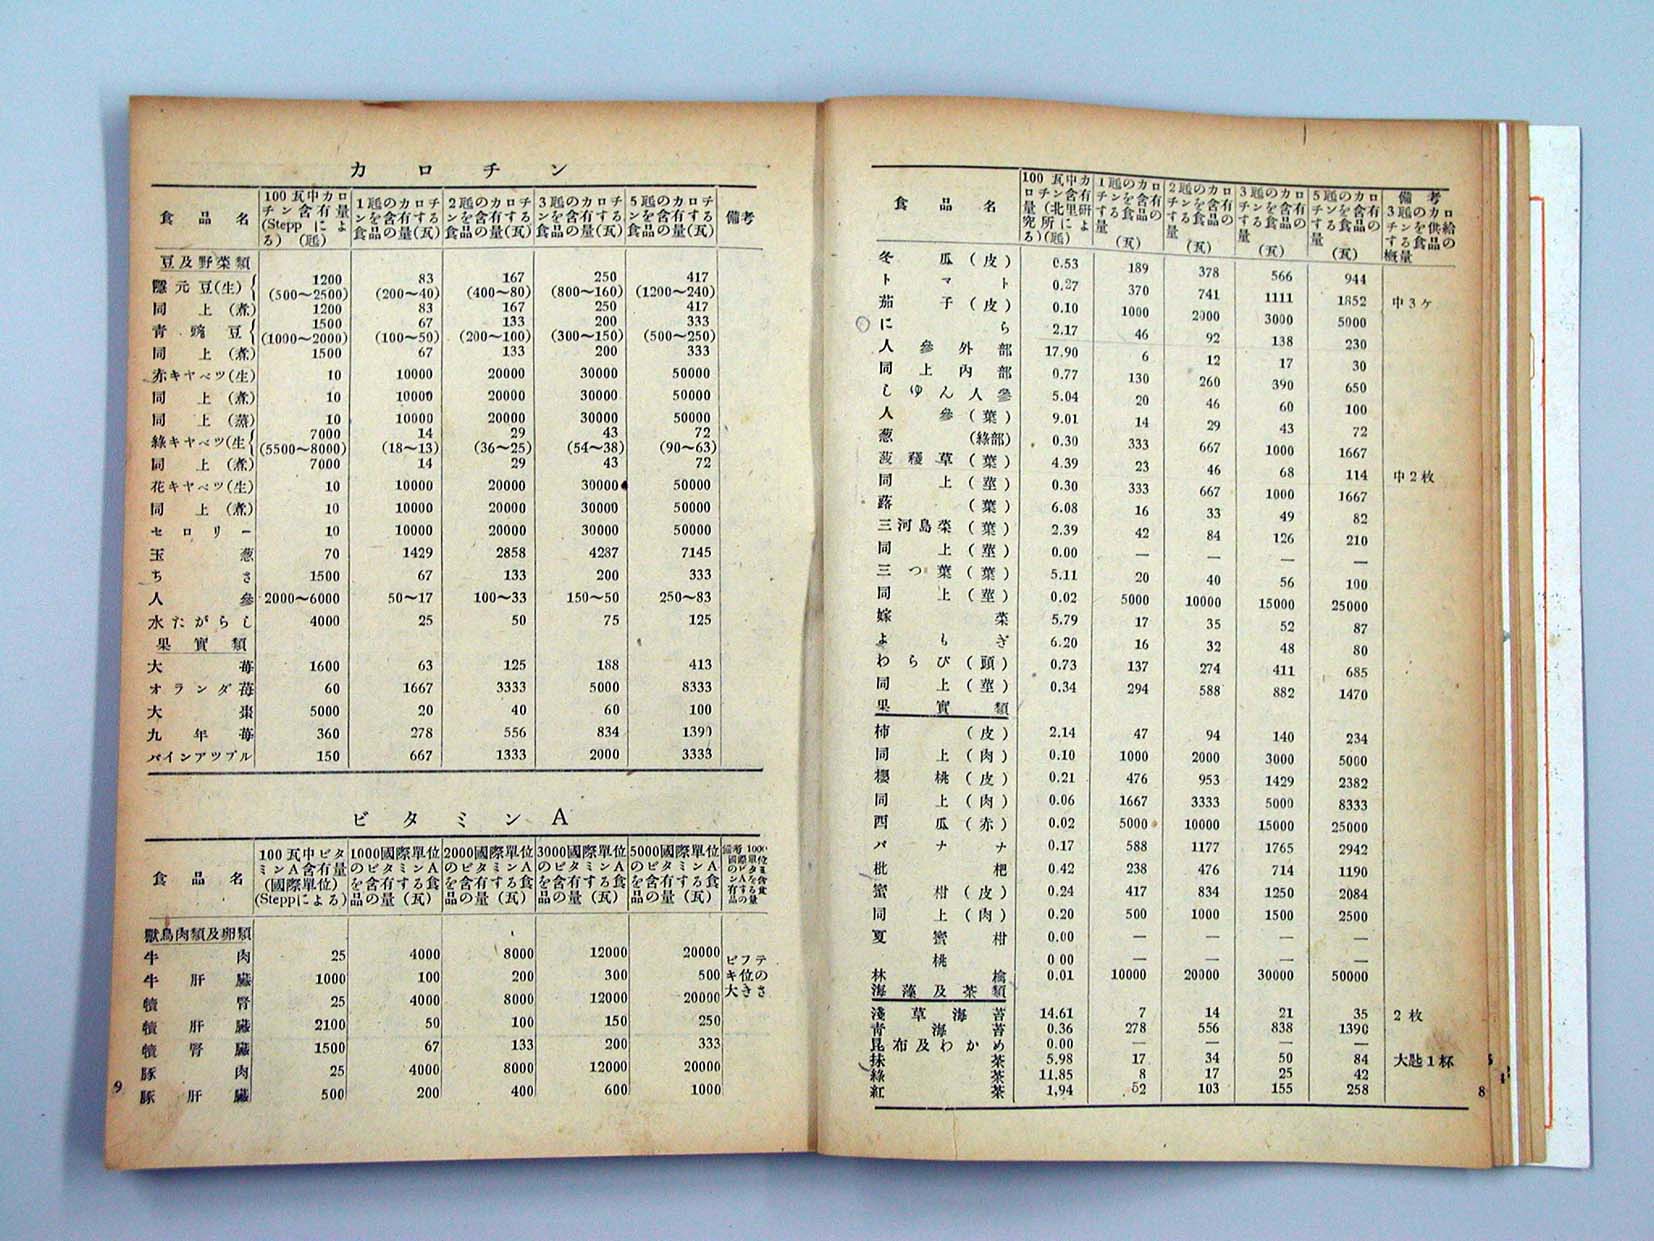 カロチン
食品名 100瓦中カロチン含有量(Steppによる)(瓱) 1瓱のカロチンを含有する食品の量(瓦) 2瓱のカロチンを含有する食品の量(瓦) 3瓱のカロチンを含有する食品の量(瓦) 5瓱のカロチンを含有する食品の量(瓦) 備考
豆及野菜類
隱元豆(生) 1200 83 167 250 417
(500〜2500) (200〜40) (400〜80) (800〜160) (1200〜240)
同上(煮) 1200 83 167 250 417
靑豌豆 1500 67 133 200 333
(1000〜2000) (100〜50) (200〜100) (300〜150) (500〜250)
同上(煮) 1500 67 133 200 333
赤キヤベツ(生) 10 10000 20000 30000 50000
同上(煮) 10 10000 20000 30000 50000
同上(蒸) 10 10000 20000 30000 50000
綠キヤベツ(生 7000 14 29 43 72
(5500〜8000) (18〜13) (36〜25) (54〜38) (90〜63)
同上(煮) 7000 14 29 43 72
花キヤベツ(生) 10 10000 20000 30000 50000
同上(煮) 10 10000 20000 30000 50000
セロリー 10 10000 20000 30000 50000
玉葱 70 1429 2858 4287 7145
ちさ 1500 67 133 200 333
人參 2000〜6000 50〜17 100〜33 150〜50 250〜83
水たがらし 4000 25 50 75 125
果實類
大苺 1600 63 125 188 413
オランダ苺 60 1667 3333 5000 8333
大棗 5000 20 40 60 100
九年苺 360 278 556 834 1390
パインアツプル 150 667 1333 2000 3333
ビタミンA
食品名 100瓦中ビタミンA含有量(國際單位)(Steppによる) 1000國際單位のビタミンAを含有する食品の量(瓦) 2000國際單位のビタミンAを含有する食品の量(瓦) 3000國際單位のビタミンAを含有する食品の量(瓦) 5000國際單位のビタミンAを含有する食品の量(瓦) 備考
獸鳥肉類及卵類
牛肉 25 4000 8000 12000 20000 ビフテ
牛肝臟 1000 100 200 300 500 キ位の
犢腎 25 4000 8000 12000 20000 大きさ
犢肝臟 2100 50 100 150 250
犢腎臟 1500 67 133 200 333
豚肉 25 4000 8000 12000 20000
豚肝臟 500 200 400 600 1000
9
食品名 100瓦中カロチン含有量(北里研究所による)(瓱) 1瓱のカロチンを含有する食品の量(瓦) 2瓱のカロチンを含有する食品の量(瓦) 3瓱のカロチンを含有する食品の量(瓦) 5瓱のカロチンを含有する食品の量(瓦) 備考 3瓱のカロチンを供給する食品の概量
冬瓜(皮) 0.53 189 378 566 944
トマト 0.27 370 741 1111 1852 中3ケ
茄子(皮) 0.10 1000 2000 3000 5000
にら 2.17 46 92 138 230
人參外部 17.90 6 12 17 30
同上內部 0.77 130 260 390 650
しゆん人參 5.04 20 46 60 100
人參(葉) 9.01 14 29 43 72
葱(綠部) 0.30 333 667 1000 1667
菠薐草(葉) 4.39 23 46 68 114 中2枚
同上(莖) 0.30 333 667 1000 1667
蕗(葉) 6.08 16 33 49 82
三河島菜(葉) 2.39 42 84 126 210
同上(莖) 0.00 — — — —
三つ葉(葉) 5.11 20 40 56 100
同上(莖) 0.02 5000 10000 15000 25000
嫁菜 5.79 17 35 52 87
よもぎ 6.20 16 32 48 80
わらび(頭) 0.73 137 274 411 685
同上(莖) 0.34 294 588 882 1470
果實類
柿(皮) 2.14 47 94 140 234
同上(肉) 0.10 1000 2000 3000 5000
櫻桃(皮) 0.21 476 953 1429 2382
同上(肉) 0.06 1667 3333 5000 8333
西瓜(赤) 0.02 5000 10000 15000 25000
バナナ 0.17 588 1177 1765 2942
枇杷 0.42 238 476 714 1190
蜜柑(皮) 0.24 417 834 1250 2084
同上(肉) 0.20 500 1000 1500 2500
夏蜜柑 0.00 — — — —
桃 0.00 — — — —
林檎 0.01 10000 20000 30000 50000
海藻及茶類
淺草海苔 14.61 7 14 21 35 2枚
靑海苔 0.36 278 556 838 1390
昆布及わかめ 0.00 — — — —
抹茶 5.98 17 34 50 84 大匙1杯
綠茶 11.85 8 17 25 42
紅茶 1,94 52 103 155 258
8